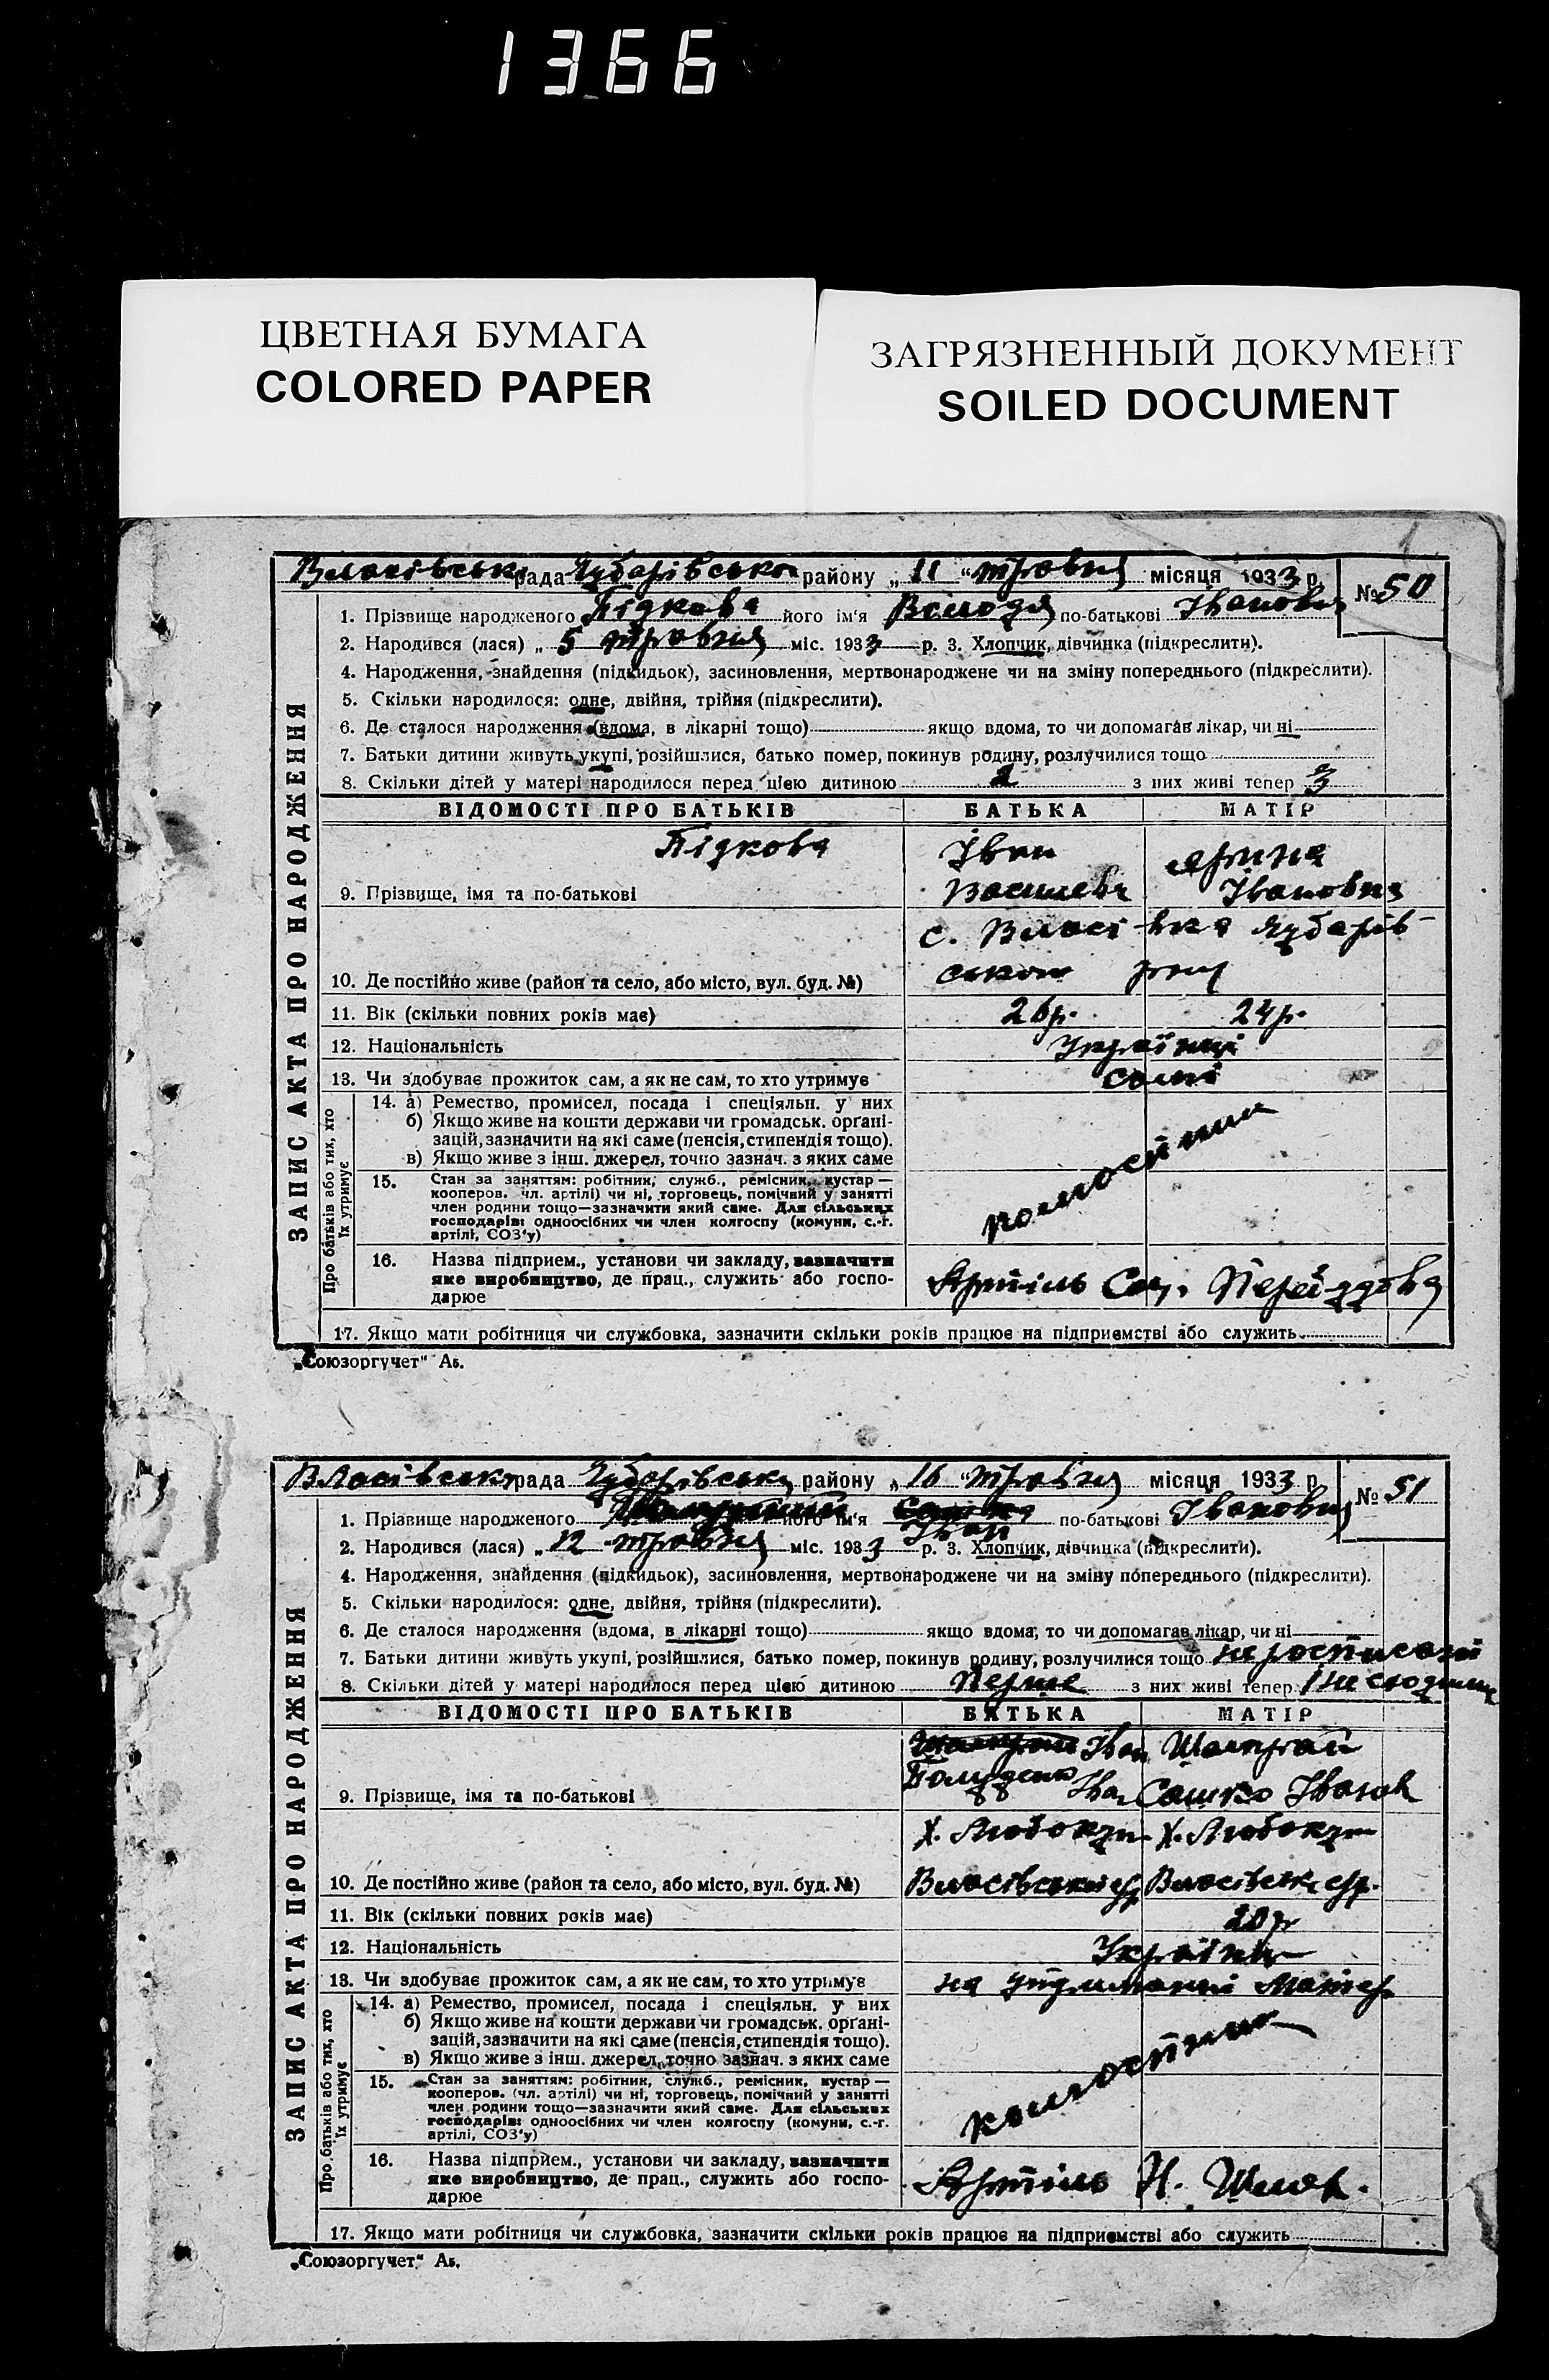 1366
ЦВЕТНАЯ БУМАГА
COLORED PAPER
ЗАГРЯЗНЕННЫЙ ДОКУМЕНТ
SOILED DOCUMENT
1
Власівська рада району „ 11 “ травня місяця 1933 р. № 50
ЗАПИС АКТА ПРО НАРОДЖЕННЯ
1. Прізвище народженого Підкова його ім'я Володя по-батькові Іванович
2. Народився (лася) „ 5 травня міс. 1933 р. 3. Хлопчик, дівчинка (підкреслити).
4. Народження, знайдення (підкидьок), засиновлення, мертвонароджене чи на зміну попереднього (підкреслити).
5. Скільки народилося: одне, двійня, трійня (підкреслити).
6. Де сталося народження (вдома, в лікарні тощо) якщо вдома, то чи допомагав лікар, чи ні
7. Батьки дитини живуть укупі, розійшлися, батько помер, покинув родину, розлучилися тощо
8. Скільки дітей у матері народилося перед цією дитиною 2 з них живі тепер 3
ВІДОМОСТІ ПРО БАТЬКІВ БАТЬКА МАТІР
Підкова Іван Ярина
9. Прізвище, імя та по-батькові Василевч Івановна
с. Власівка
10. Де постійно живе (район та село, або місто, вул. буд. №)
11. Вік (скільки повних років має) 26р. 24р.
12. Національність Українці
13. Чи здобуває прожиток сам, а як не сам, то хто утримує самі
Про батьків або тих, хто їх утримує
14. а) Ремество, промисел, посада і спеціяльн. у них
б) Якщо живе на кошти держави чи громадськ. органі-
зацій, зазначити на які саме (пенсія, стипендія тощо).
в) Якщо живе з інш. джерел, точно зазнач. з яких саме
15. Стан за заняттям: робітник, служб., ремісник, кустар —
кооперов. (чл. артілі) чи ні, торговець, помічний у занятті
член родини тощо—зазначити який саме. Для сільських
господарів: одноосібних чи член колгоспу (комуни, с.-г.
артілі, СОЗ'у)
16. Назва підприєм., установи чи закладу, зазначити
яке виробництво, де прац., служить або госпо-
дарює
Артіль Соц.
17. Якщо мати робітниця чи службовка, зазначити скільки років працює на підприємстві або служить
„Союзоргучет“ Аб.
Власівська рада району „ 16 “ травня місяця 1933 р. № 51
ЗАПИС АКТА ПРО НАРОДЖЕННЯ
1. Прізвище народженого його ім'я Іван по-батькові Іванович
2. Народився (лася) „ 12 травня міс. 1933 р. 3. Хлопчик, дівчинка (підкреслити).
4. Народження, знайдення (підкидьок), засиновлення, мертвонароджене чи на зміну попереднього (підкреслити).
5. Скільки народилося: одне, двійня, трійня (підкреслити).
6. Де сталося народження (вдома, в лікарні тощо) якщо вдома, то чи допомагав лікар, чи ні
7. Батьки дитини живуть укупі, розійшлися, батько помер, покинув родину, розлучилися тощо не росписані
8. Скільки дітей у матері народилося перед цією дитиною Перше з них живі тепер
ВІДОМОСТІ ПРО БАТЬКІВ БАТЬКА МАТІР
Іван Шапрай
9. Прізвище, імя та по-батькові Сашко Іванов
Х. Х.
10. Де постійно живе (район та село, або місто, вул. буд. №) Власівської Власівськ. ср.
11. Вік (скільки повних років має) 20 р
12. Національність
13. Чи здобуває прожиток сам, а як не сам, то хто утримує на утриманні Матер.
Про батьків або тих, хто їх утримує
14. а) Ремество, промисел, посада і спеціяльн. у них
б) Якщо живе на кошти держави чи громадськ. органі-
зацій, зазначити на які саме (пенсія, стипендія тощо).
в) Якщо живе з інш. джерел, точно зазнач. з яких саме
15. Стан за заняттям: робітник, служб., ремісник, кустар —
кооперов. (чл. артілі) чи ні, торговець, помічний у занятті
член родини тощо—зазначити який саме. Для сільських
господарів: одноосібних чи член колгоспу (комуни, с.-г.
артілі, СОЗ'у)
16. Назва підприєм., установи чи закладу, зазначити
яке виробництво, де прац., служить або госпо-
дарює
Артіль Н. Шлях.
17. Якщо мати робітниця чи службовка, зазначити скільки років працює на підприємстві або служить
„Союзоргучет“ Аб.